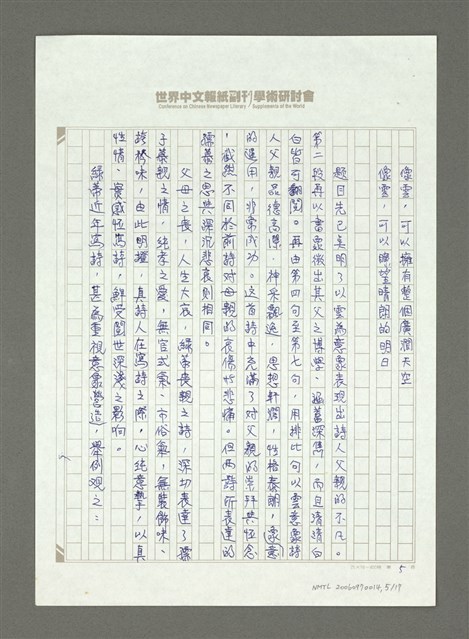 世界中文報紙副刊學術研討會
Conference on Chinese Newspaper Literary Supplements of the World
像雲，可以擁有整個廣濶天空
像雲，可以瞭望晴朗的明日
題目先已美明了以雲為意象表現出詩人父親的不凡。
第二段再以書象徵出其父之博學、涵蓄深雋，而且清清白
白皆可翻閱。再由第四句至第七句，用排比句以雲意象詩
人父親品德高潔、神采飄逸，思想軒濶，性格泰朗，象意
的運用，非常成功。這首詩中充滿了對父親的崇拜與懷念
，截然不同於前詩對母親的哀傷的悲痛。但兩詩所表達的
孺慕之思與深沉悲哀則相同。
父母之喪，人生大哀，綠蒂喪親之詩，深切表達了孺
子慕親之情，純孝之愛，無官式氣、市俗氣，無裝飾味、
誇矜味，由此明證，真詩人在寫詩之際，心純意摯，以真
性情、實感恆寫詩，鮮受閱世深淺之影响。
綠蒂近年寫詩，甚為重視意象營造，舉例觀之：
5
NMTL 20060970014, 5/17